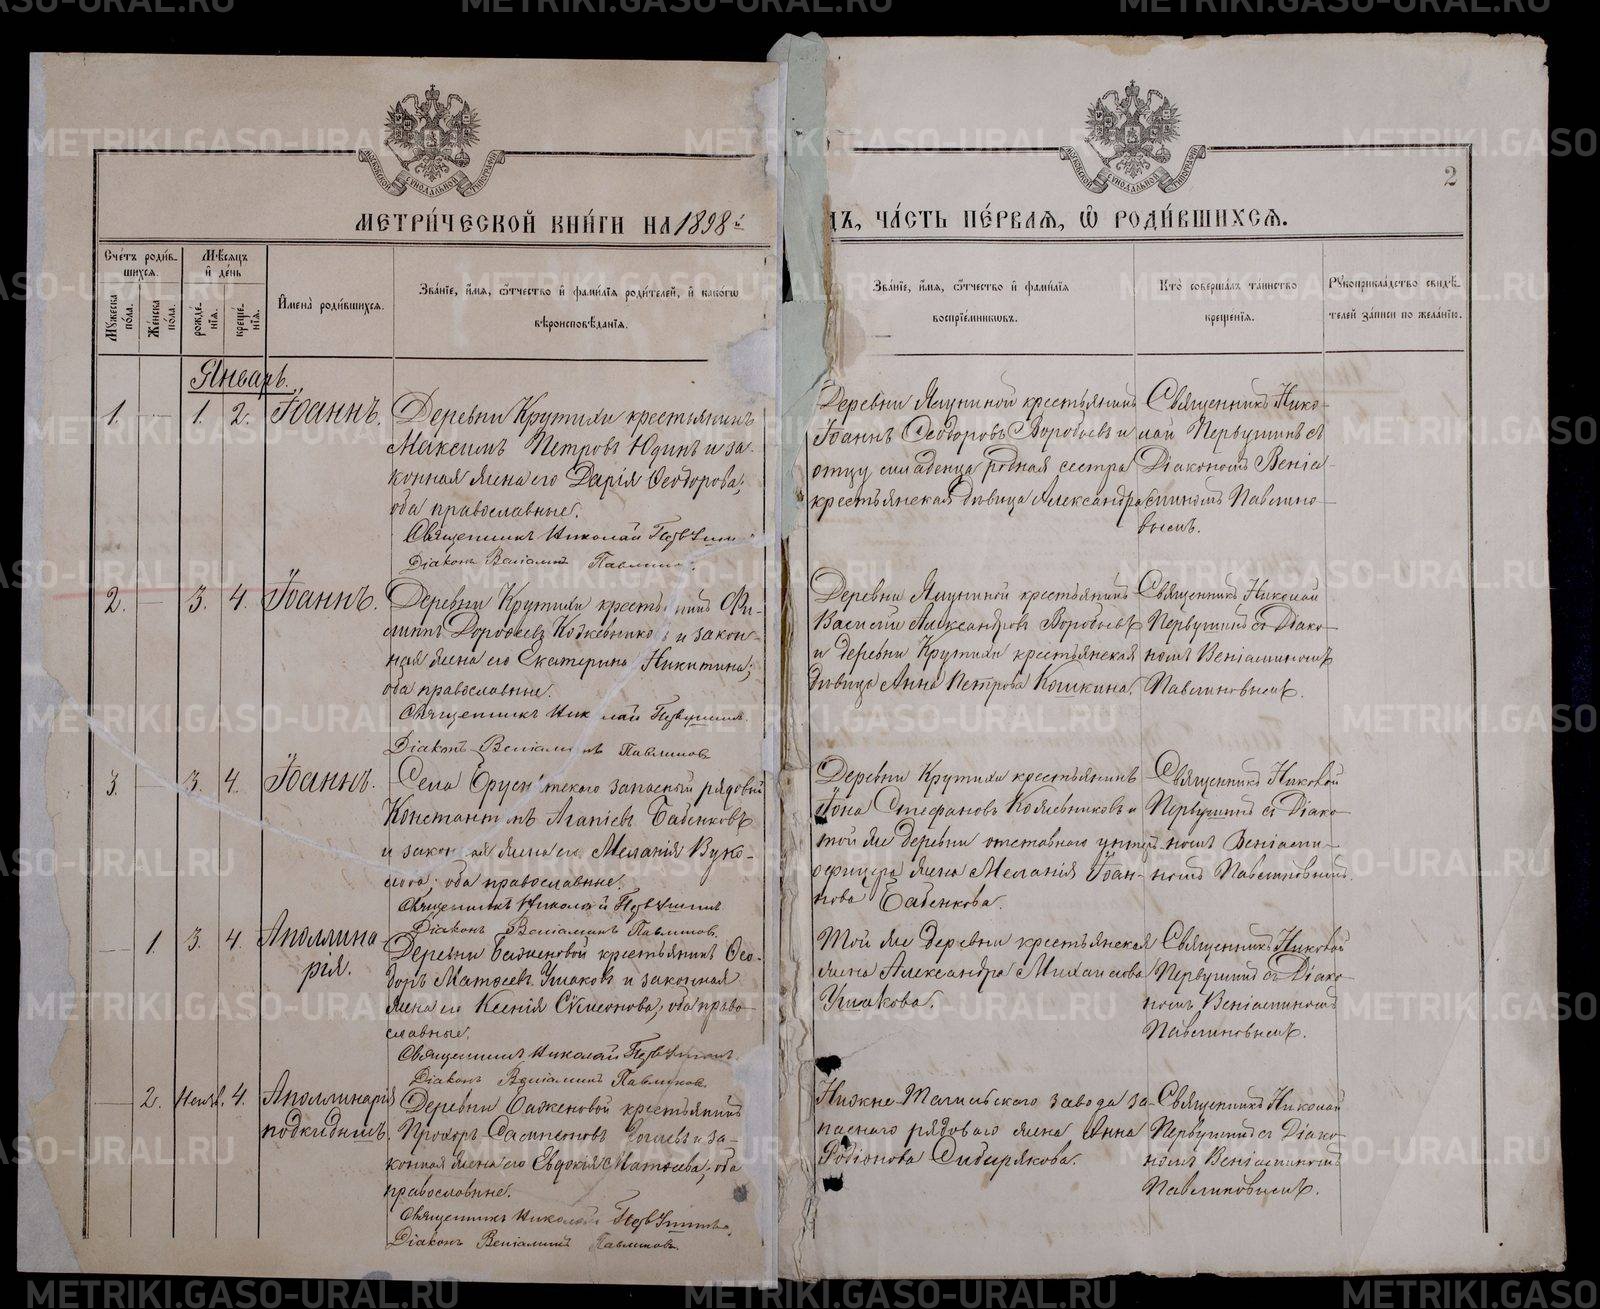 МЕТРИ́ЧЕСКОЙ КНИ́ГИ НА 1898й
ДЪ, ЧА́СТЬ ПЕ́РВАѦ, Ѡ РОДИ́ВШИХСѦ.
2
Сче́тъ роди́в-
шихсѧ.
Мѣсѧцъ
и де́нь
Мужеска
по́ла.
Же́нска
по́ла.
рожде́-
нїѧ.
креще́-
нїѧ.
Имена̀ роди́вшихсѧ.
Зва́нїе, и́мѧ, о́тчество и фами́лїѧ роди́телей, и како́гѡ
вѣроисповѣ́данїѧ.
Зва́нїе, и́мѧ, о́тчество и фами́лїѧ
воспрїе́мниковъ.
Кто̀ соверша́лъ та́инство
креще́нїѧ.
Рукоприкла́дство свидѣ́-
телей за́писи по жела́нїю.
Январь.
1. — 1. 2. Іоаннъ.
Деревни Крутихи крестьянинъ
Максимъ Петровъ Юдинъ и за-
конная жена его Дарія Ѳеодорова;
оба православные.
Священникъ Николай
Діаконъ Веніаминъ
Деревни Ялуниной крестьянинъ
Іоаннъ Ѳеодоровъ Воробьевъ и
отцу младенца родная сестра
крестьянская дѣвица Александра
Священникъ Нико-
лай Первушинъ съ
Діакономъ Веніа-
миномъ Павлино-
вымъ.
2. — 3. 4. Іоаннъ.
Деревни Крутихи
Дороѳеевъ Кожевниковъ и закон-
ная жена его Екатерина Никитина;
оба православные.
Священникъ Николай Первушинъ.
Діаконъ Веніаминъ Павлиновъ
Деревни Ялуниной крестьянинъ
Василій Александровъ Воробьевъ
и деревни Крутихи крестьянская
дѣвица Анна Петрова Кошкина.
Священникъ Николай
Первушинъ съ Діако-
номъ Веніаминомъ
Павлиновымъ.
3. — 3. 4. Іоаннъ.
Села запасный рядовый
Агапіевъ Бабенковъ
и законная жена его Меланія Вуко-
лова; оба православные.
Священникъ Николай Первушинъ.
Діаконъ Веніаминъ Павлиновъ.
Деревни Крутихи крестьянинъ
Іона Стефановъ Кожевниковъ и
той же деревни отставного унтеръ-
офицера жена Меланія Іоан-
нова Бабенкова.
Священникъ Николай
Первушинъ съ Діако-
номъ Веніами-
номъ Павлиновымъ.
— 1. 3. 4. Аполлина-
рія.
Деревни Баженовой крестьянинъ Ѳео-
доръ Матѳеевъ Ушаковъ и законная
жена его Ксенія Симеонова; оба право-
славные.
Священникъ Николай Первушинъ.
Діаконъ Веніаминъ Павлиновъ.
Той же деревни крестьянская
жена Александра Михайлова
Ушакова.
Священникъ Николай
Первушинъ съ Діако-
номъ Веніаминомъ
Павлиновымъ.
— 2. 4. Аполлинарія
подкидышъ.
Деревни Баженовой крестьянинъ
Прохоръ Сампсоновъ и за-
конная жена его Евдокія Матѳеева; оба
православные.
Священникъ Николай Первушинъ,
Діаконъ Веніаминъ Павлиновъ.
Нижне-Тагильскаго завода за-
паснаго рядоваго жена Анна
Родіонова Сибирякова.
Священникъ Николай
Первушинъ съ Діако-
номъ Веніаминомъ
Павлиновымъ.
METRIKI.GASO-URAL.RU